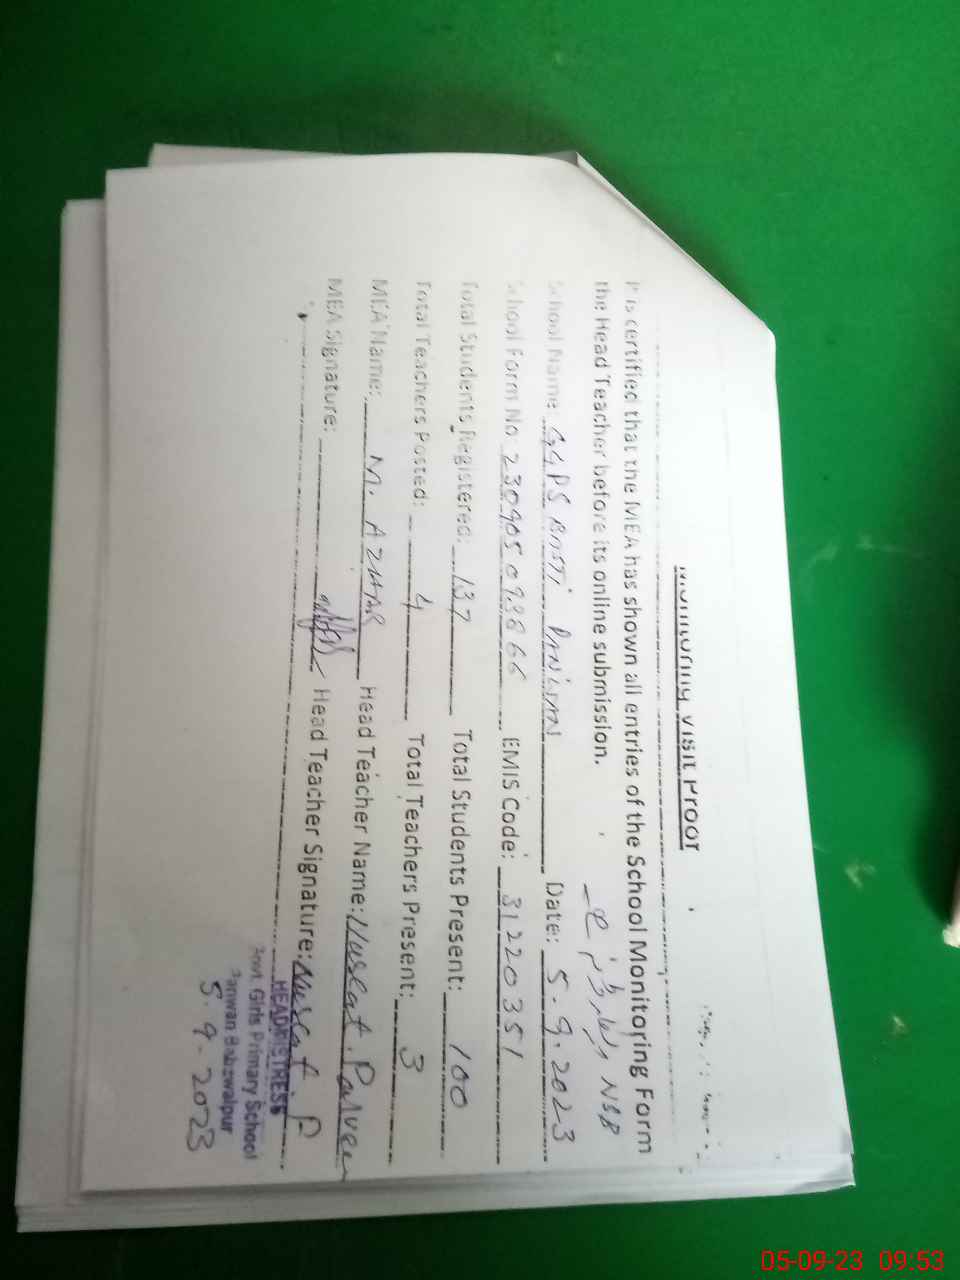 Monitoring Visit Proof
It is certified that the MEA has shown all entries of the School Monitoring Form
the Head Teacher before its online submission.
NSB
School Name: GGPS BASTI Date: 5.9.2023
School Form No: 230905093866 EMIS Code: 31220351
Total Students Registered: 137 Total Students Present: 100
Total Teachers Posted: 4 Total Teachers Present: 3
MEA Name: M. AZHAR Head Teacher Name: Nusrat Parveen
MEA Signature: Head Teacher Signature: Nusrat P
HEADMISTRESS
Govt. Girls Primary School
Panwan Bahawalpur
5.9.2023
05-09-23 09:53